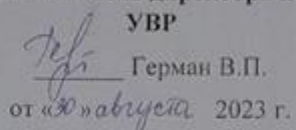 УВР
Герман В.П.
от «30» августа 2023 г.